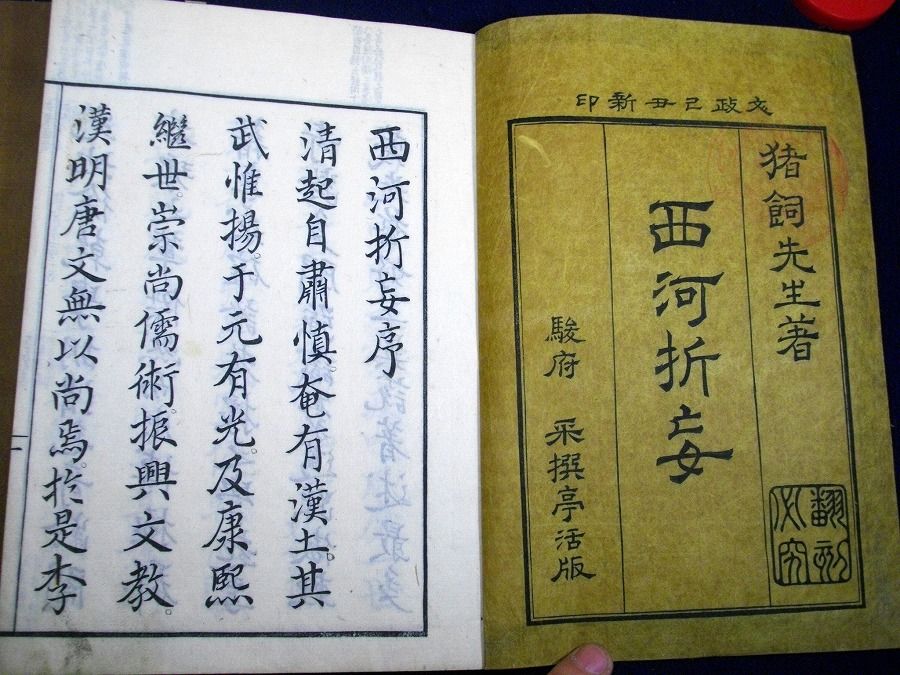 文政己丑新印
猪飼先生著
西河折妄
駿府 采撰亭活版
翻刻必究
西河折妄序
清起自肅慎。奄有漢土。其
武惟揚。于元有光。及康熙
繼世。崇尚儒術。振興文教。
漢明唐文無以尚焉。於是李